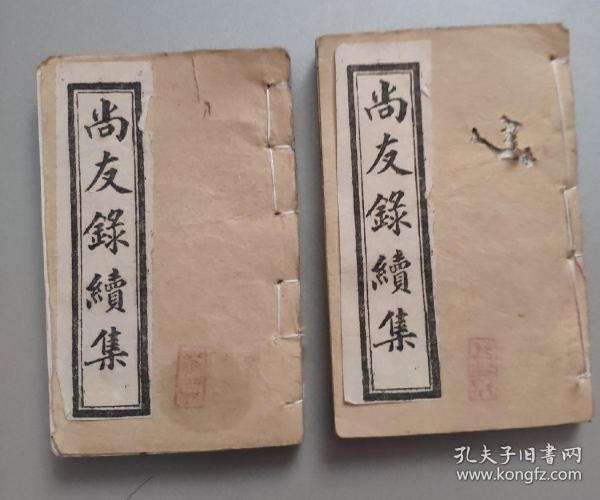 尚友錄續集
尚友錄續集
孔夫子旧书网
https://www.kongfz.com